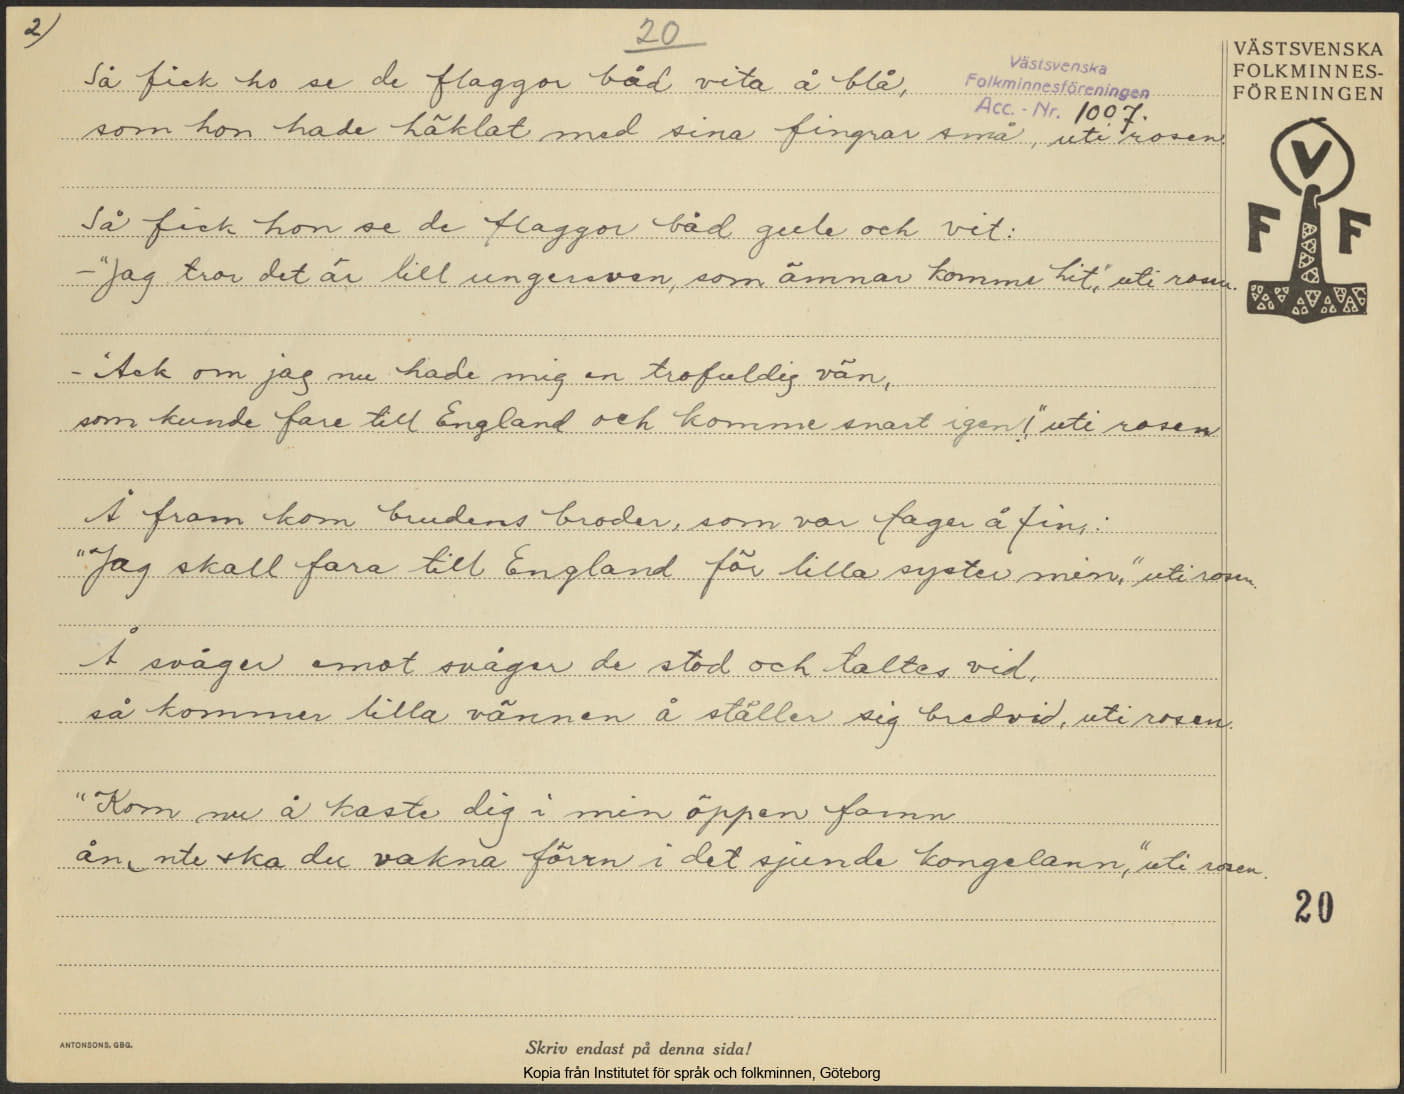 2)
20
Västsvenska
Folkminnesföreningen
Acc. - Nr. 1007.
VÄSTSVENSKA
FOLKMINNES-
FÖRENINGEN
V
F F
Så fick ho se de flaggor båd vita å blå,
som hon hade häklat med sina fingrar små, uti rosen.
Så fick hon se de flaggor båd gule och vit:
–"Jag tror det är lill ungersven, som ämnar komme hit," uti rosen.
–"Ack om jag nu hade mig en trofuldig vän,
som kunde fare till England och komme snart igen!" uti rosen
Å fram kom brudens broder, som var fager å fin,:
"Jag skall fara till England för lilla syster min," uti rosen.
Å svåger emot svåger de stod och taltes vid,
så kommer lilla vännen å ställer sig bredvid, uti rosen.
"Kom nu å kaste dig i min öppen famn
ån nte ska du vakna förrn i det sjunde kongelann," uti rosen.
20
ANTONSONS. GBG.
Skriv endast på denna sida!
Kopia från Institutet för språk och folkminnen, Göteborg